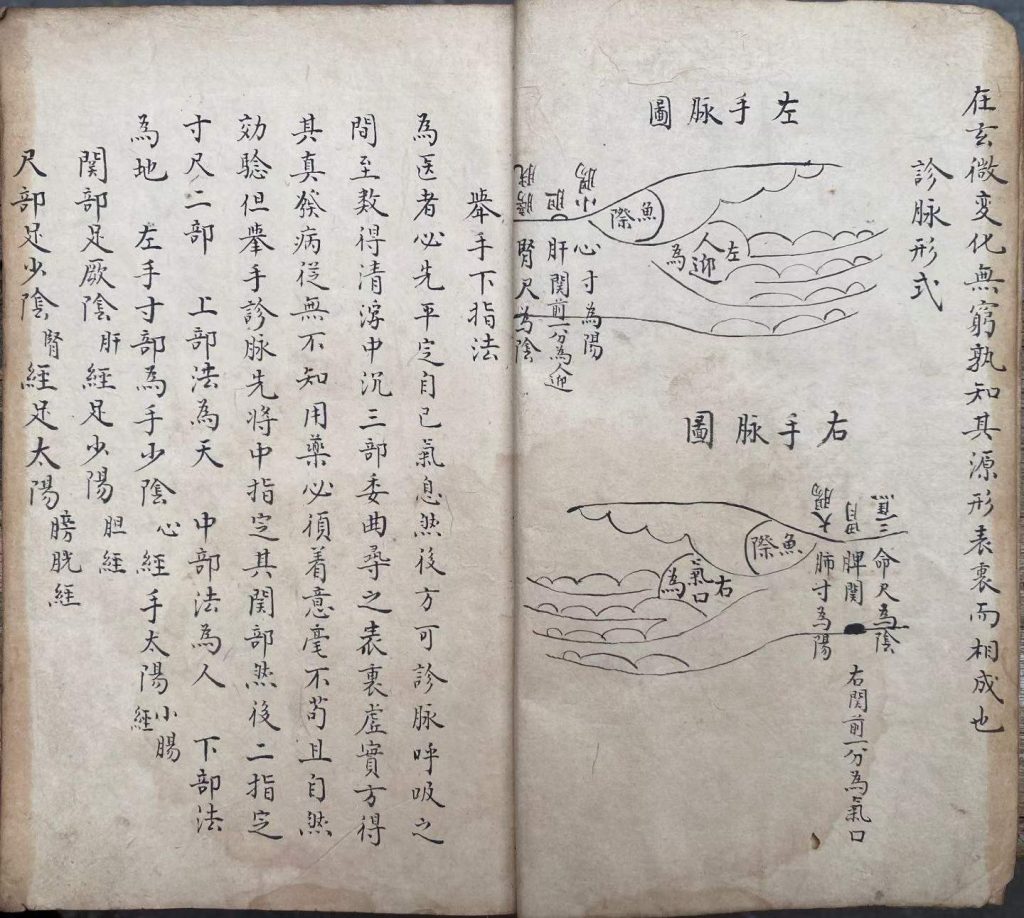 在玄微変化無窮孰知其源形表裏而相成也
診脉形式
左手脉圖
魚際
左為人迎
小腸
胆
膀胱
心寸為陽
肝関前一分為人迎
腎尺為陰
右手脉圖
魚際
右為氣口
三焦
胃
大腸
命尺為陰
脾関
肺寸為陽
右関前一分為氣口
舉手下指法
為医者必先平定自已氣息然後方可診脉呼吸之
間至数得清浮中沉三部委曲尋之表裏虛實方得
其真發病從無不知用藥必須着意毫不苟且自然
効驗但舉手診脉先将中指定其関部然後二指定
寸尺二部 上部法為天 中部法為人 下部法
為地 左手寸部為手少陰心經手太陽小腸經
関部足厥陰肝經足少陽胆經
尺部足少陰腎經足太陽膀胱經